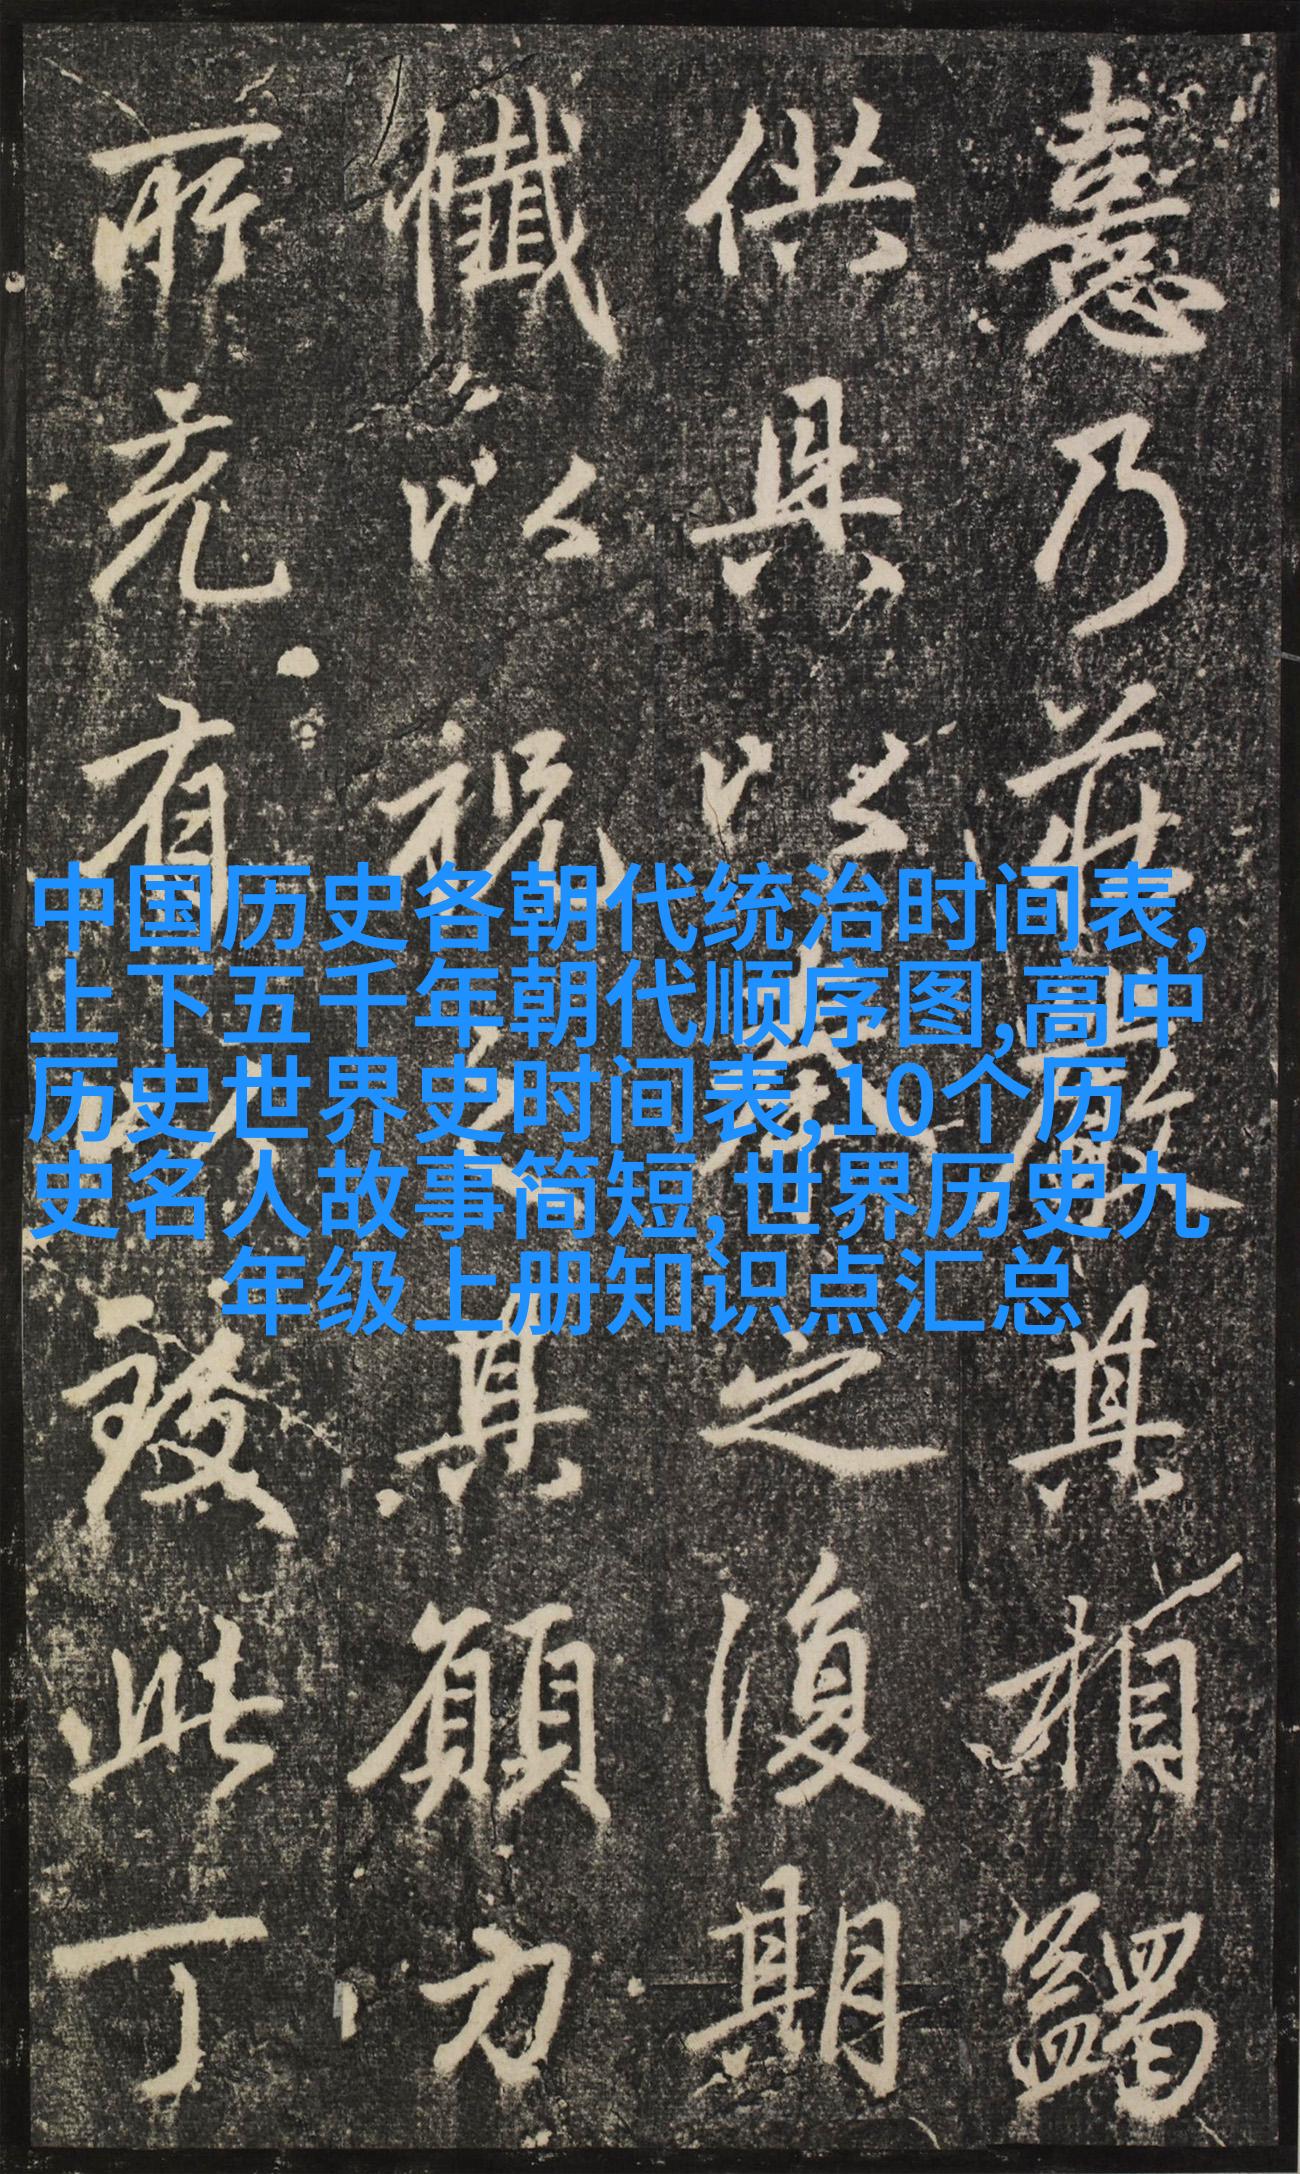 憙乃莊嚴其相蠲
供具以之復期
懺以祝其願力
所有此丁
中国历史各朝代统治时间表,
上下五千年朝代顺序图,高中
历史世界史时间表,10个历
史名人故事简短,世界历史九
年级上册知识点汇总